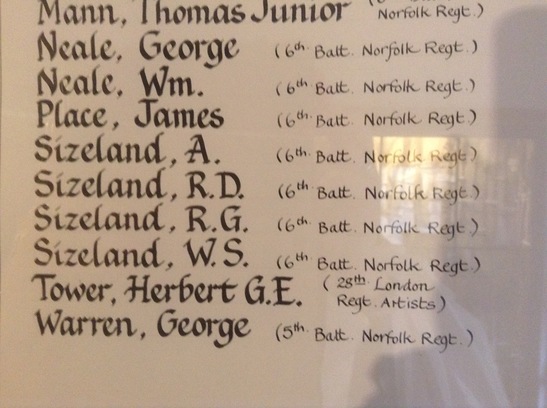 Mann, Thomas Junior Norfolk Regt.)
Neale, George (6th. Batt. Norfolk Regt.)
Neale, Wm. (6th. Batt. Norfolk Regt.)
Place, James (6th. Batt. Norfolk Regt.)
Sizeland, A. (6th. Batt. Norfolk Regt.)
Sizeland, R.D. (6th. Batt. Norfolk Regt.)
Sizeland, R.G. (6th. Batt. Norfolk Regt.)
Sizeland, W.S. (6th Batt. Norfolk Regt.)
Tower, Herbert G.E. (28th London
Regt. Artists)
Warren, George (5th. Batt. Norfolk Regt.)